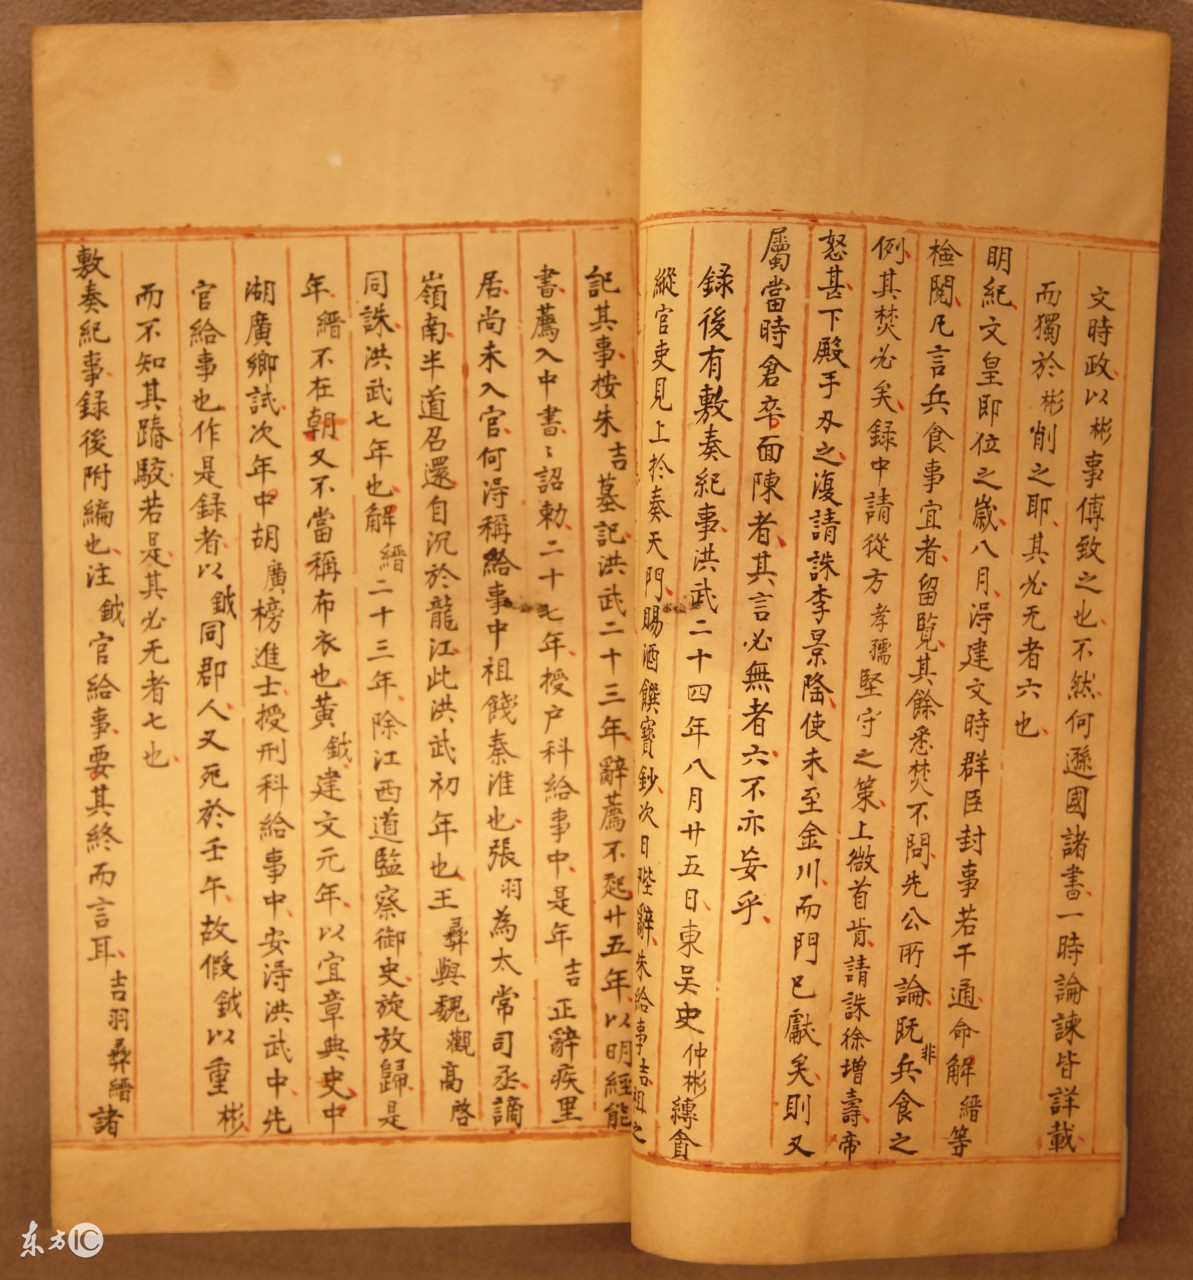 文時政以彬事傅致之也不然何遜國諸書一時論諫皆詳載
而獨於彬削之耶其必无者六也
明紀文皇即位之歲八月淂建文時群臣封事若干通命解縉等
檢閱凡言兵食事宜者留覧其餘悉焚不問先公所論既非兵食之
例其焚必矣録中請從方孝孺堅守之策上微首肯請誅徐增壽帝
怒甚下殿手刃之復請誅李景隆使未至金川而門已獻矣則又
屬當時倉卒面陳者其言必無者六不亦妄乎
録後有敷奏紀事洪武二十四年八月廿五日東吴史仲彬縳貪
縱官吏見上扵奏天門賜酒饌寳鈔次日陛辭朱給事吉祖之
記其事按朱吉墓記洪武二十三年辭薦不起廿五年以明經能
書薦入中書〻詔勅二十七年授户科給事中是年吉正辭疾里
居尚未入官何淂稱給事中祖餞秦淮也張羽為太常司丞謫
嶺南半道召還自沉於龍江此洪武初年也王彞與魏觀高啓
同誅洪武七年也解縉二十三年除江西道監察御史旋放歸是
年縉不在朝又不當稱布衣也黄鉞建文元年以宜章典史中
湖廣鄉試次年中胡廣榜進士授刑科給事中安淂洪武中先
官給事也作是録者以鉞同郡人又死於壬午故假鉞以重彬
而不知其踳駁若是其必无者七也
敷奏紀事録後附編也注鉞官給事要其終而言耳吉羽彞縉諸
东方IC